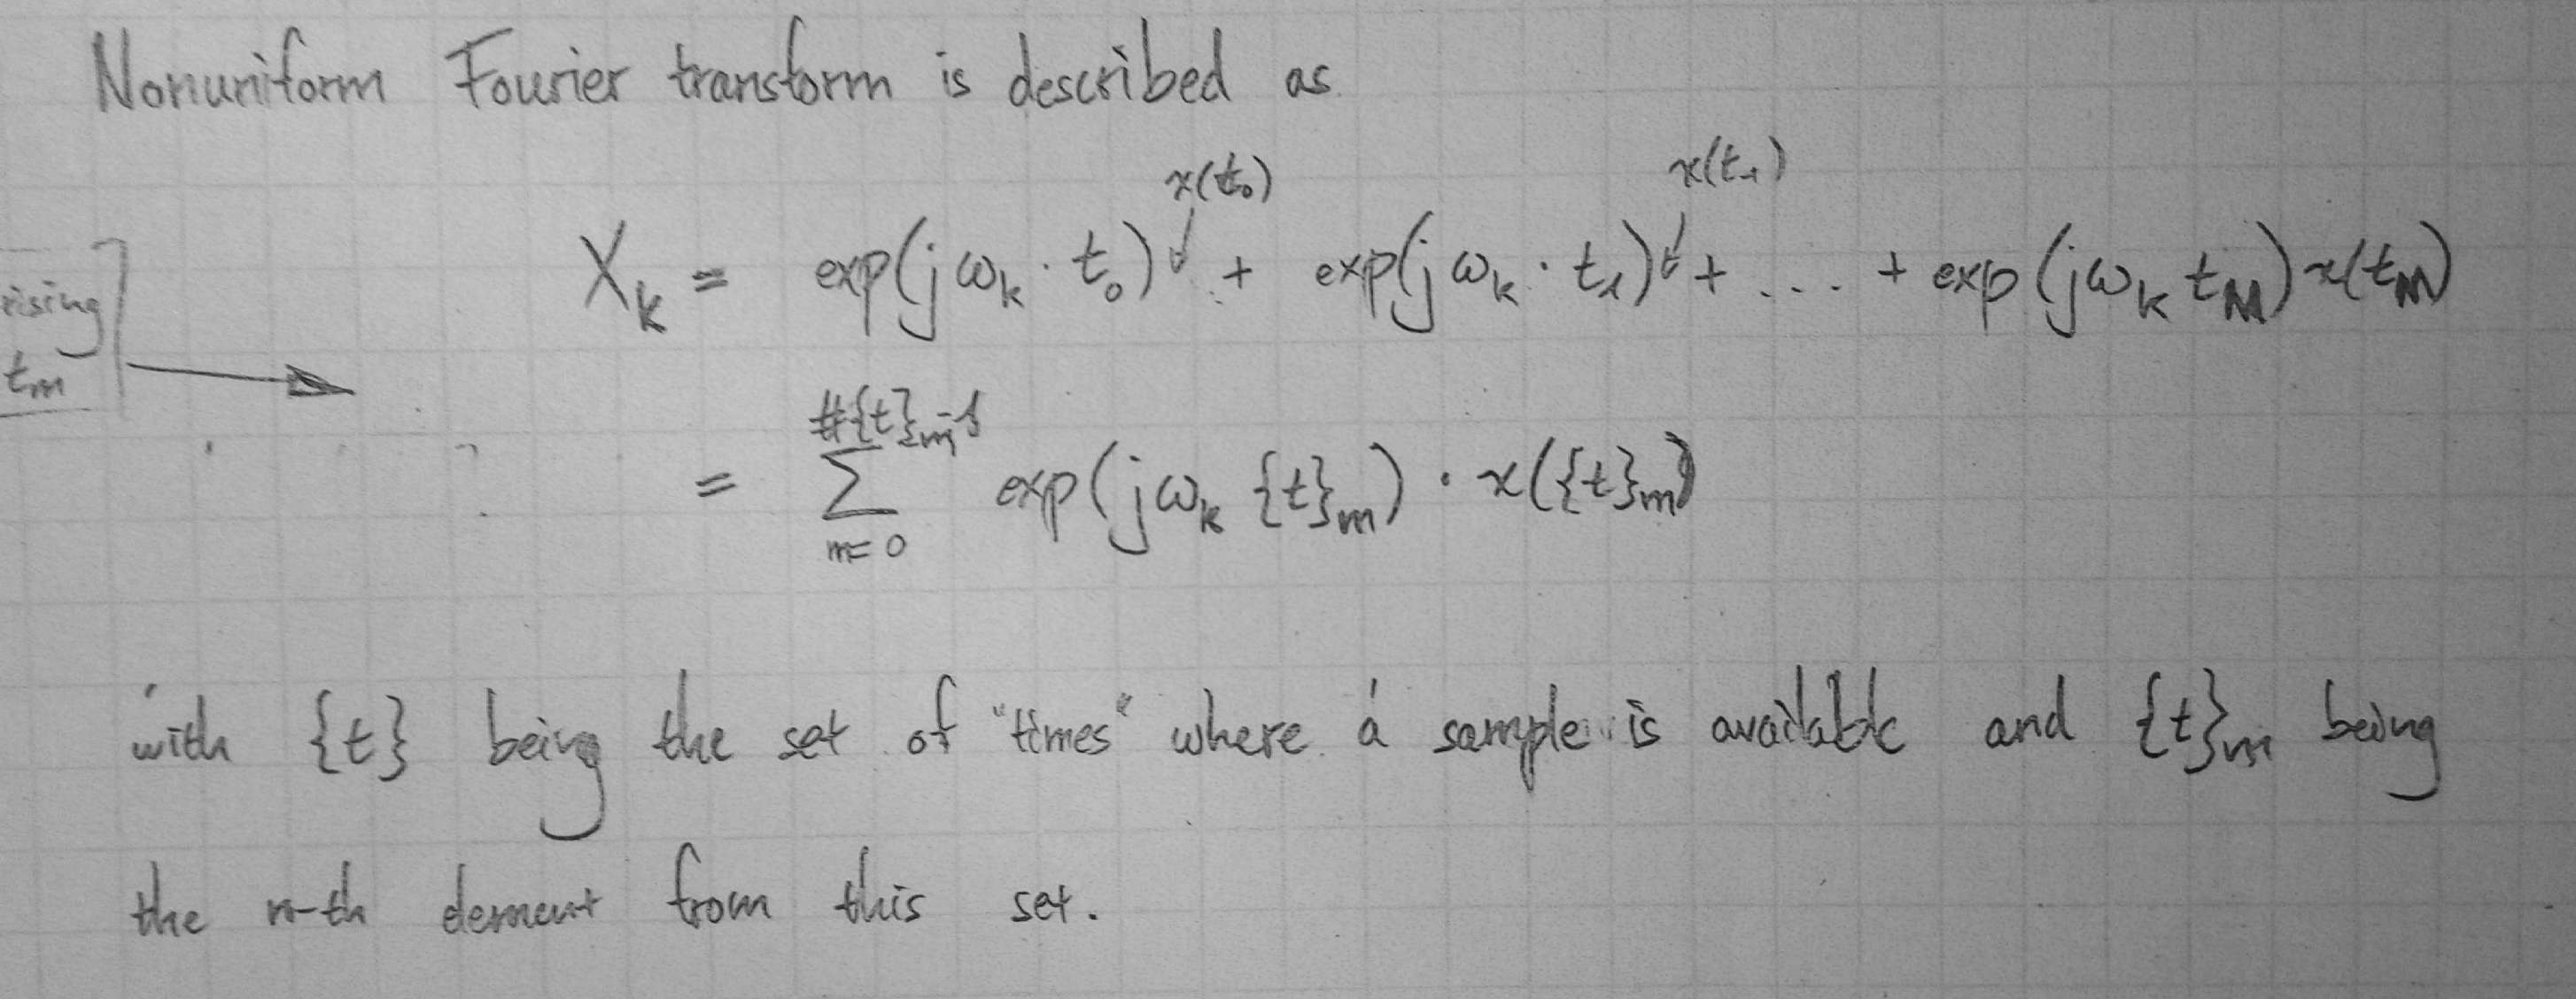 Nonuniform Fourier transform is described as
x(t₀) x(t₁)
X_k = exp(jω_k · t₀) + exp(jω_k · t₁) + ... + exp(jω_k t_M) x(t_M)
rising
t_m
#{t}_m-1
= ∑ exp(jω_k {t}_m) · x({t}_m)
m=0
with {t} being the set of "times" where a sample is available and {t}_m being
the m-th element from this set.